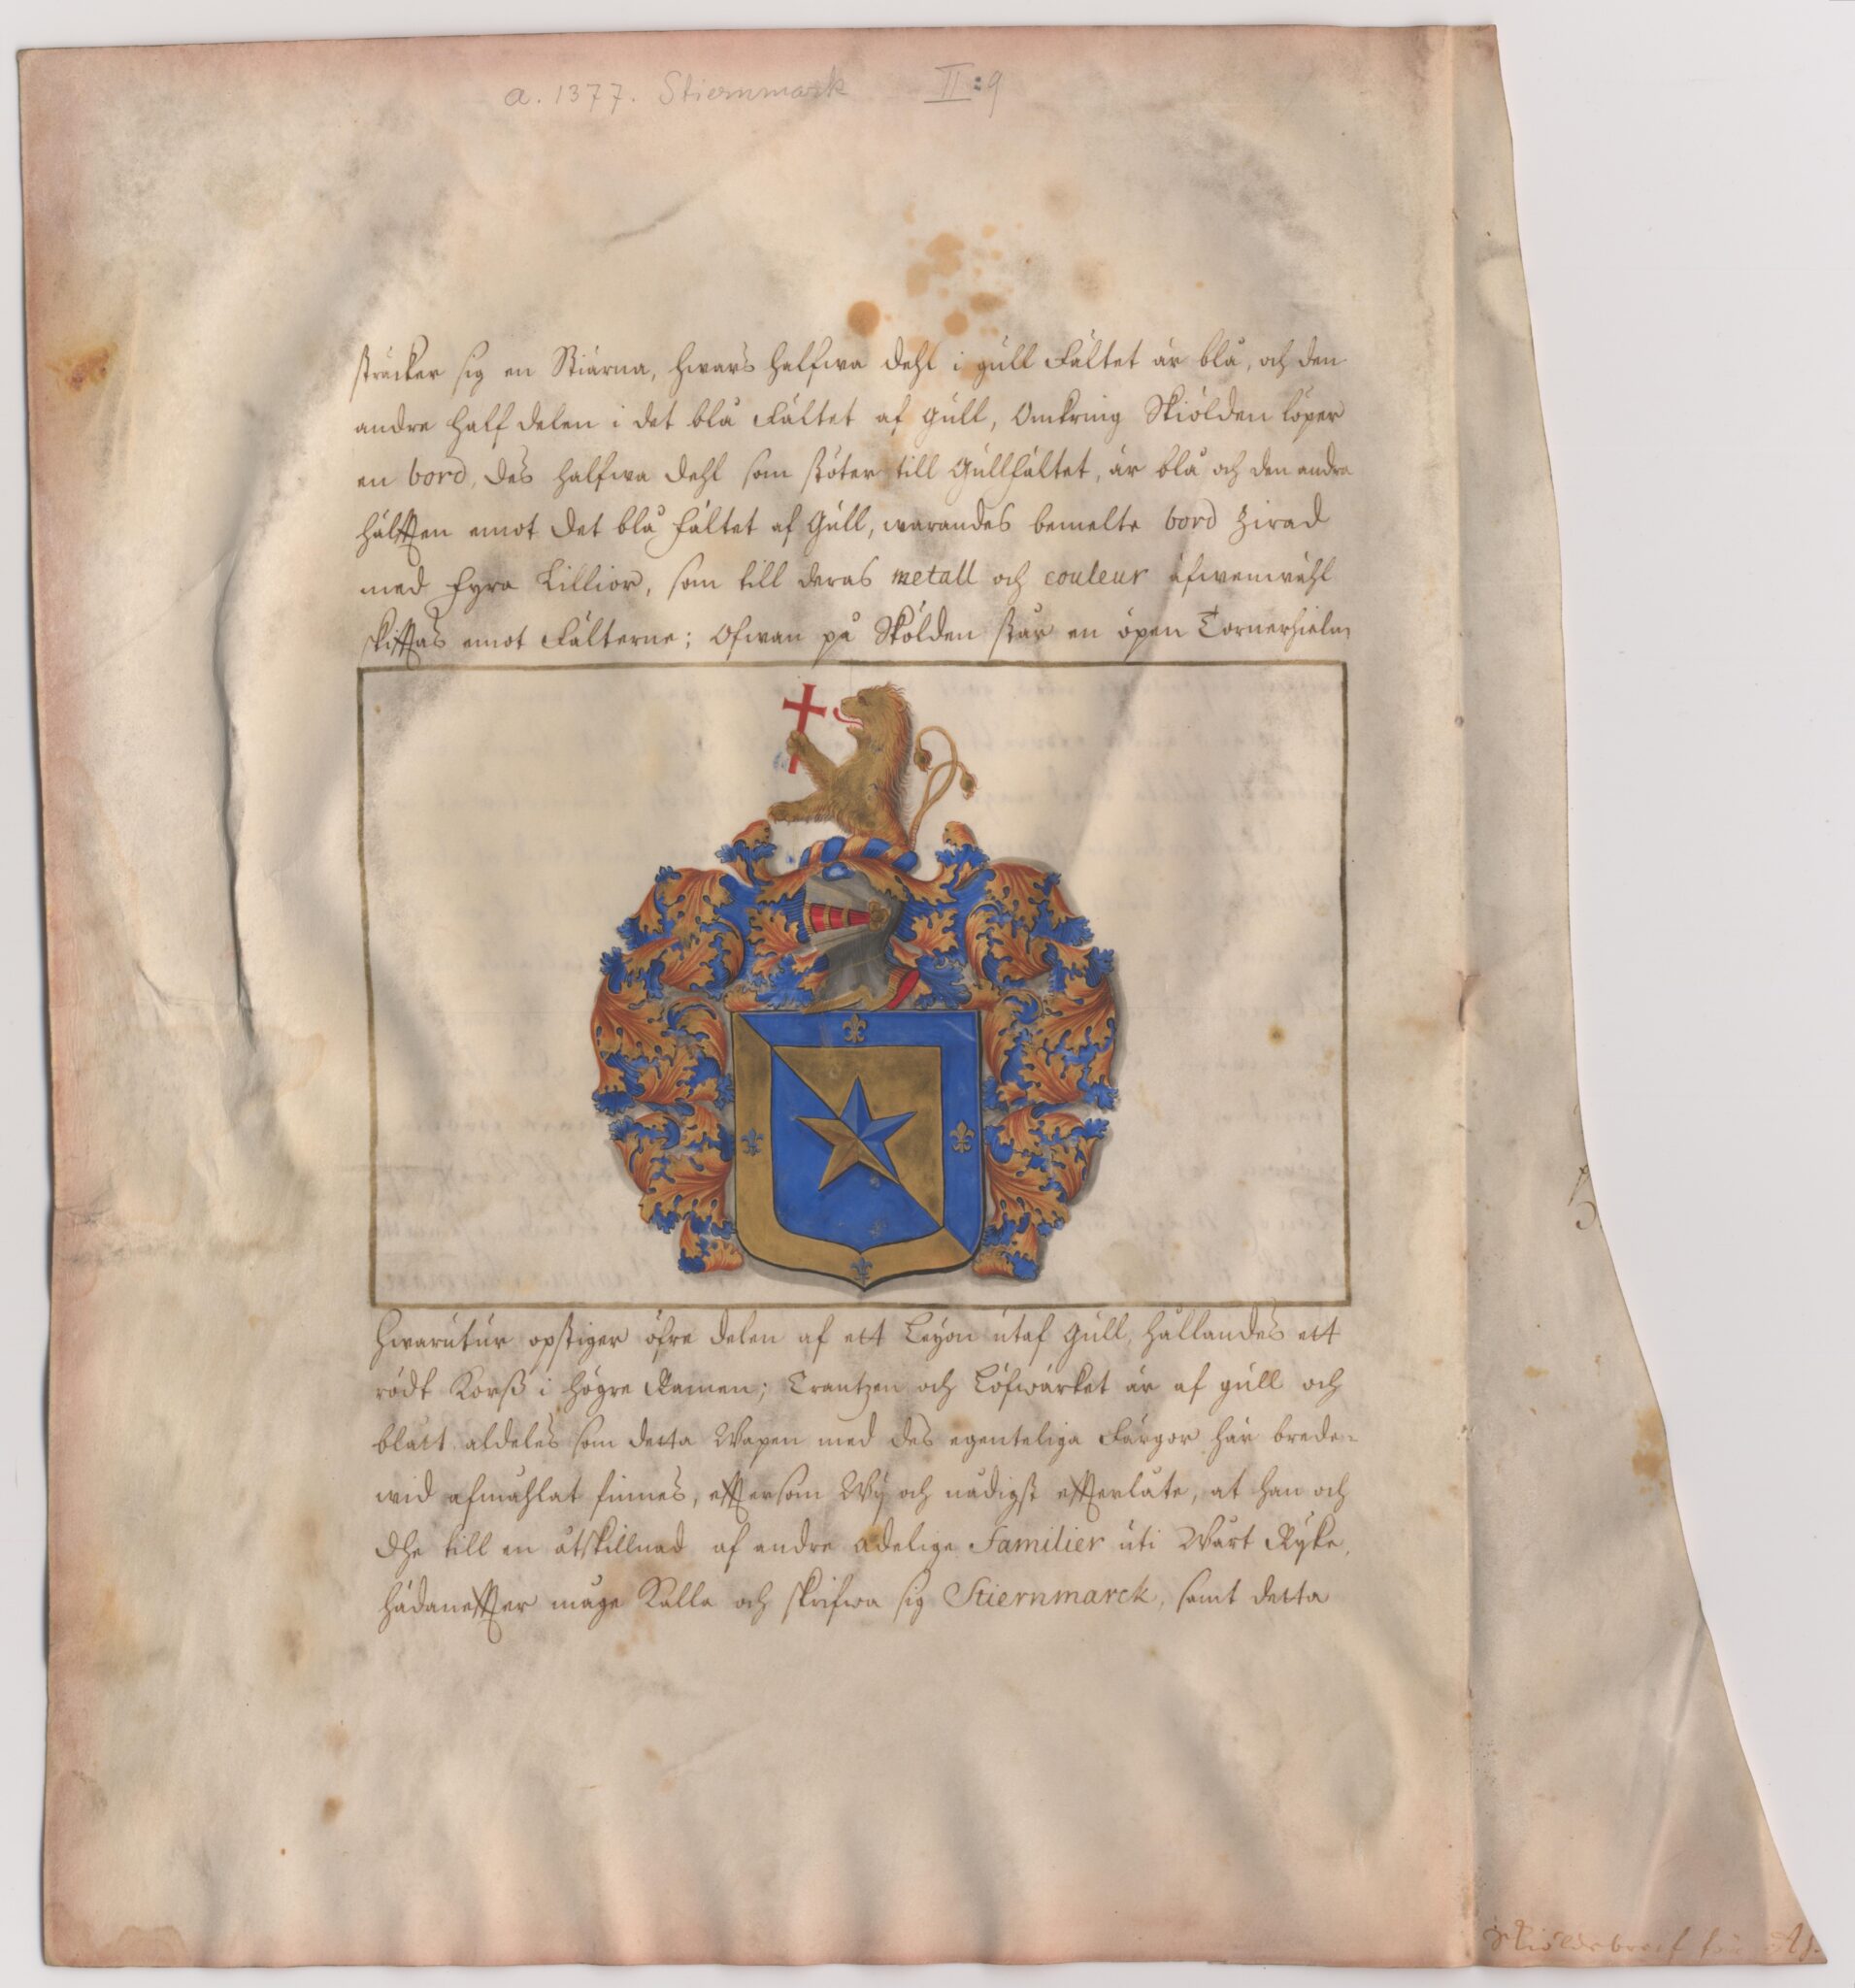 a. 1377. Stiernmark II:9
sträcker sig en Stiärna, hwars halfwa dehl i gull Fältet är blå, och den
andre half delen i det blå Fältet af Gull, Omkring Skiölden löper
en bord, des halfwa dehl som stöter till Gullfältet, är blå och den andra
hälfften emot det blå fältet af Gull, warandes bemelte bord Zirad
med fyra Lillior, som till deras metall och couleur äfwenwähl
skifftas emot Fälterne; Ofwan på Skölden står en öpen Tornerhielm
hwarutur opstiger öfre delen af ett Leyon utaf Gull, hållandes ett
rödt Korß i högre Ramen; Crantzen och Löfwärket är af gull och
blått aldeles som detta Wapen med des egenteliga Färgor här brede-
wid afmåhlat finnes, efftersom Wij och nådigst effterlåte, at han och
dhe till en åtskillnad af andre adelige Familier uti Wårt Ryke,
hädaneffter måge Kalla och skrifwa sig Stiernmarck, samt detta
Skiöldebref för